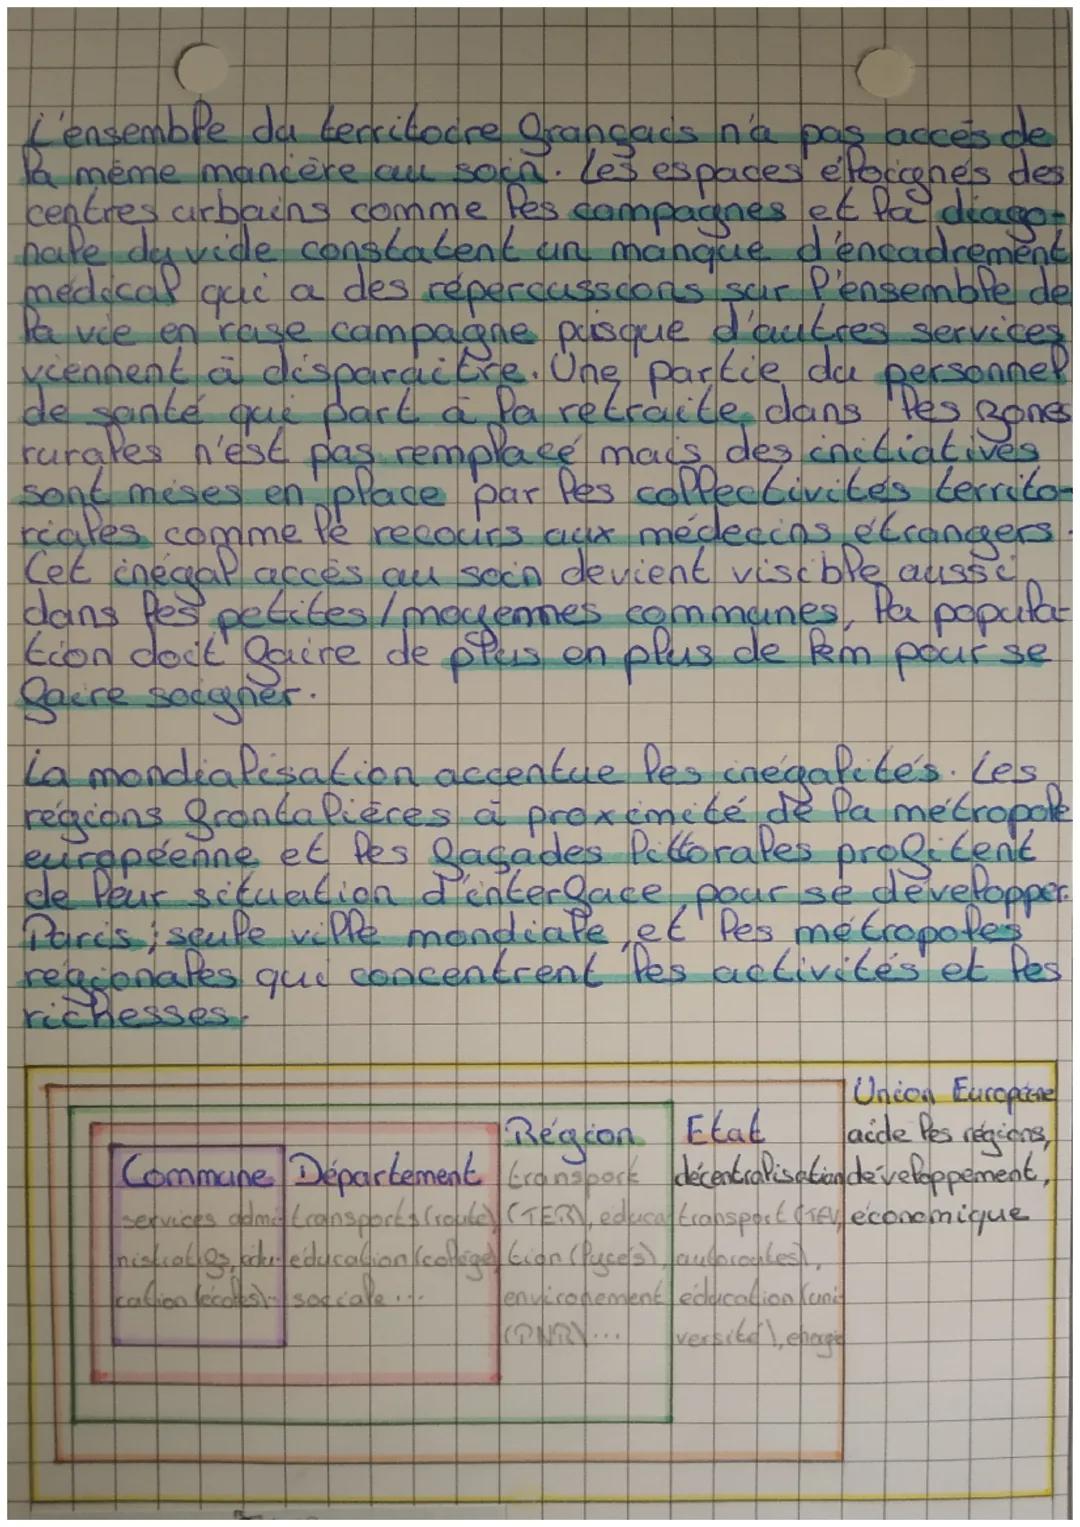 L'ensemble du territoire français n'a pas accés de
la même manière au soin. Les espaces éloignés des
centres urbains comme les campagnes et la diago-
nale du vide constatent un manque d'encadrement
médical qui a des répercussions sur l'ensemble de
la vie en rase campagne puisque d'autres services
viennent à disparaitre. Une partie du personnel
de santé qui part à la retraite dans les zones
rurales n'est pas remplacé mais des initiatives
sont mises en place par les collectivités territo-
riales comme le recours aux médecins étrangers.
Cet inégal accès au soin devient visible aussi
dans les petites/moyennes communes, la popula-
tion doit faire de plus en plus de km pour se
faire soigner.
La mondialisation accentue les inégalités. Les
régions frontalières à proximité de la métropole
européenne et les façades littorales profitent
de leur situation d'interface pour se développer.
Paris; seule ville mondiale, et les métropoles
régionales qui concentrent les activités et les
richesses.
Commune
services admi
nistratifs, édu-
cation (écoles)
Département
transports (route)
éducation (collège)
sociale...
Région
transport
(TER), éduca
tion (lycés),
environement
(PNR)...
Etat
décentralisation
transport (TGV,
autoroutes),
éducation (uni
versité), énergie
Union Européene
aide les régions,
développement,
économique